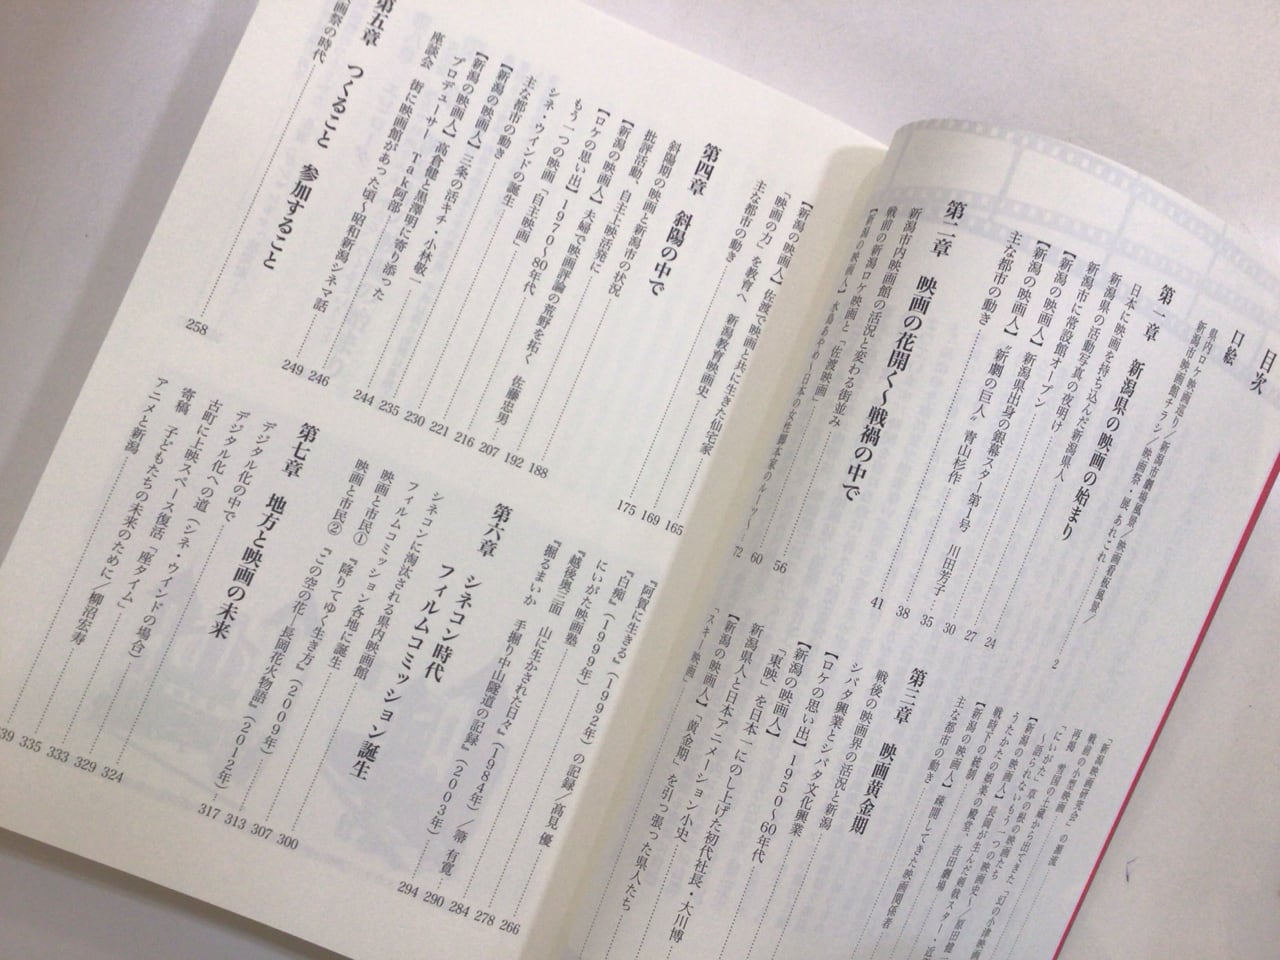 目次
口絵
県内ロケ映画巡り／新潟市劇場風景／映画看板風景／
新潟市映画館チラシ／映画祭・展 あれこれ
第一章　新潟県の映画の始まり
日本に映画を持ち込んだ新潟県人 2
新潟県の活動写真の夜明け 24
新潟市に常設館オープン 27
【新潟の映画人】新潟県出身の銀幕スター第1号　川田芳子 30
【新潟の映画人】“新劇の巨人”青山杉作 35
主な都市の動き 38
第二章　映画の花開く〜戦禍の中で
新潟市内映画館の活況と変わる街並み 41
戦前の新潟ロケ映画と「佐渡映画」 56
【新潟の映画人】水島あやめ〜日本の女性脚本家のルーツ〜 60
72
「新潟映画研究会」の源流
戦前の小型映画
再掲　雪国の土蔵から出てきた「幻の小津映画
「にいがた」草の根の映画たち
〜語られないもう一つの映画史〜／原田健一
【新潟の映画人】長岡が生んだ剣戟スター・近
うたかたの娯楽の殿堂、古田劇場
戦時下の統制
【新潟の映画人】疎開してきた映画関係者
主な都市の動き
第三章　映画黄金期
戦後の映画界の活況と新潟
シバタ興業とシバタ文化興業
【ロケの思い出】1950〜60年代
【新潟の映画人】
「東映」を日本一にのし上げた初代社長・大川博
新潟県人と日本アニメーション小史
【新潟の映画人】「黄金期」を引っ張った県人たち
「スキー映画」
【新潟の映画人】佐渡で映画と共に生きた仙宅家 165
「映画の力」を教育へ　新潟教育映画史 169
主な都市の動き 175
第四章　斜陽の中で
斜陽期の映画と新潟市の状況 188
批評活動、自主上映活発に 192
【新潟の映画人】夫婦で映画評論の荒野を拓く　佐藤忠男 207
【ロケの思い出】1970〜80年代 216
もう一つの映画「自主映画」 221
シネ・ウインドの誕生 230
主な都市の動き 235
【新潟の映画人】三条の活キチ・小林敬一 244
【新潟の映画人】高倉健と黒澤明に寄り添った
プロデューサー　Tak阿部 246
座談会　街に映画館があった頃〜昭和新潟シネマ話 249
第五章　つくること　参加すること
画祭の時代 258
『阿賀に生きる』（1992年）の記録／高見　優 266
『白痴』（1999年） 278
にいがた映画塾 284
『越後奥三面　山に生かされた日々』（1984年）／箒　有寛 290
『掘るまいか　手掘り中山隧道の記録』（2003年） 294
第六章　シネコン時代
フィルムコミッション誕生
シネコンに淘汰される県内映画館 300
フィルムコミッション各地に誕生 307
映画と市民①　『降りてゆく生き方』（2009年） 313
映画と市民②　『この空の花―長岡花火物語』（2012年） 317
第七章　地方と映画の未来
デジタル化の中で 324
デジタル化への道（シネ・ウインドの場合） 329
古町に上映スペース復活「座タイム」 333
寄稿　子どもたちの未来のために／柳沼宏寿 335
アニメと新潟 339